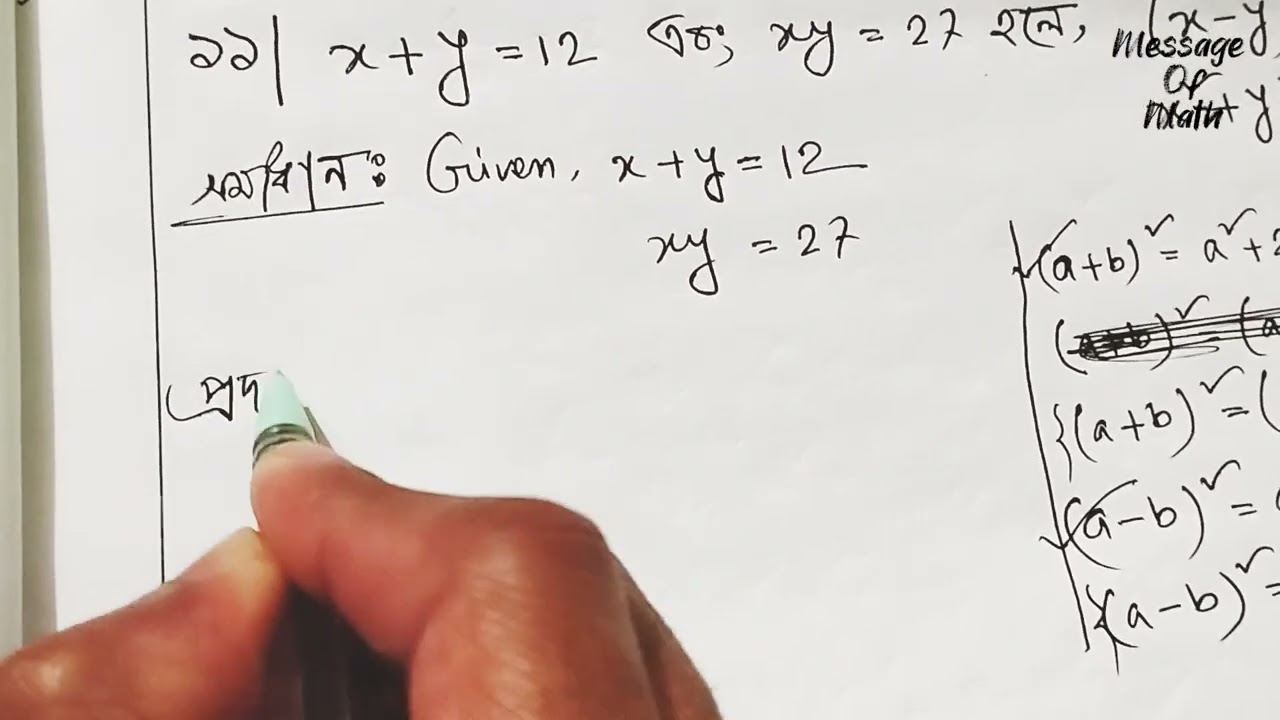 ১১| x + y = 12 এবং xy = 27 হলে, (x - y
+ y
Message
Of
Math
সমাধান: Given, x + y = 12
xy = 27
প্রদ
(a+b)² = a² + 2
{(a+b)² = (
(a-b)² =
{(a-b)² =